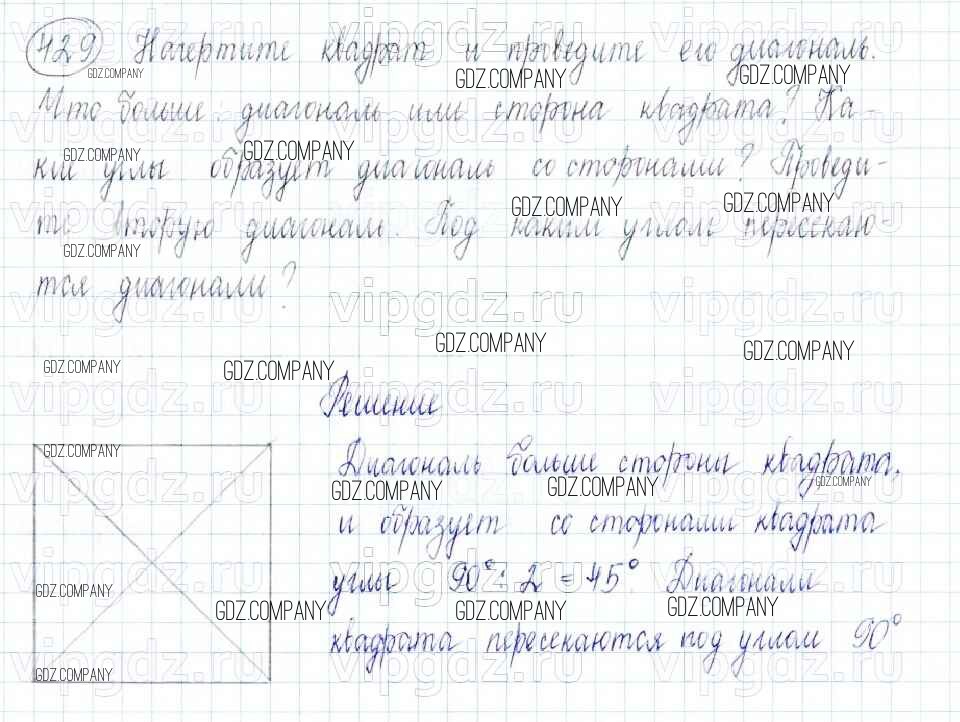 429 Начертите квадрат и проведите его диагональ.
Что больше: диагональ или сторона квадрата? Ка-
кие углы образует диагональ со сторонами? Проведи-
те вторую диагональ. Под каким углом пересекаю-
тся диагонали?
Решение
Диагональ больше стороны квадрата,
и образует со сторонами квадрата
углы 90° : 2 = 45° Диагонали
квадрата пересекаются под углом 90°
vipgdz.ru
GDZ.COMPANY